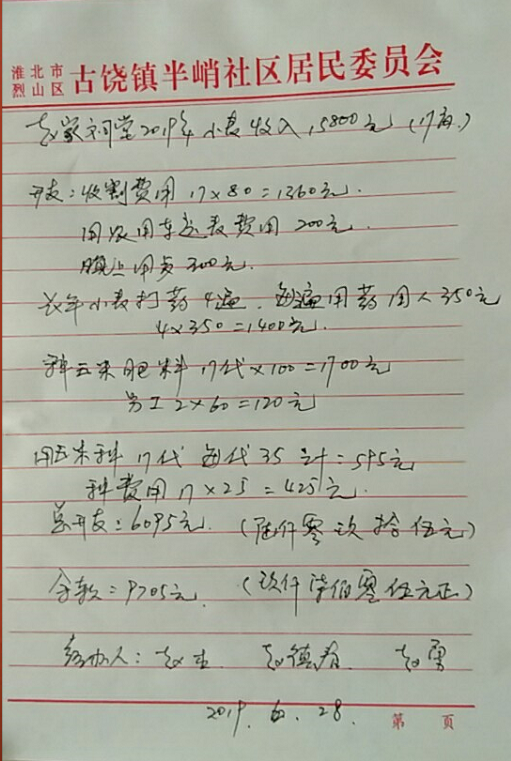 淮北市
烈山区 古饶镇半峭社区居民委员会
赵家祠堂2019年小麦收入15800元(17亩.)
开支:收割费用17×80=1360元.
用人用车运麦费用200元.
晒麦用300元.
长年小麦打药4遍.每遍用药用人350元
4×350=1400元.
种玉米肥料17代×100=1700元
劳工2×60=120元
用玉米种17代每代35计=595元
种费用17×25=425元.
总开支:6095元.(陆仟零玖拾伍元)
余款:9705元.(玖仟柒佰零伍元正)
经办人:赵 赵德 赵勇
2019.6.28
第 页